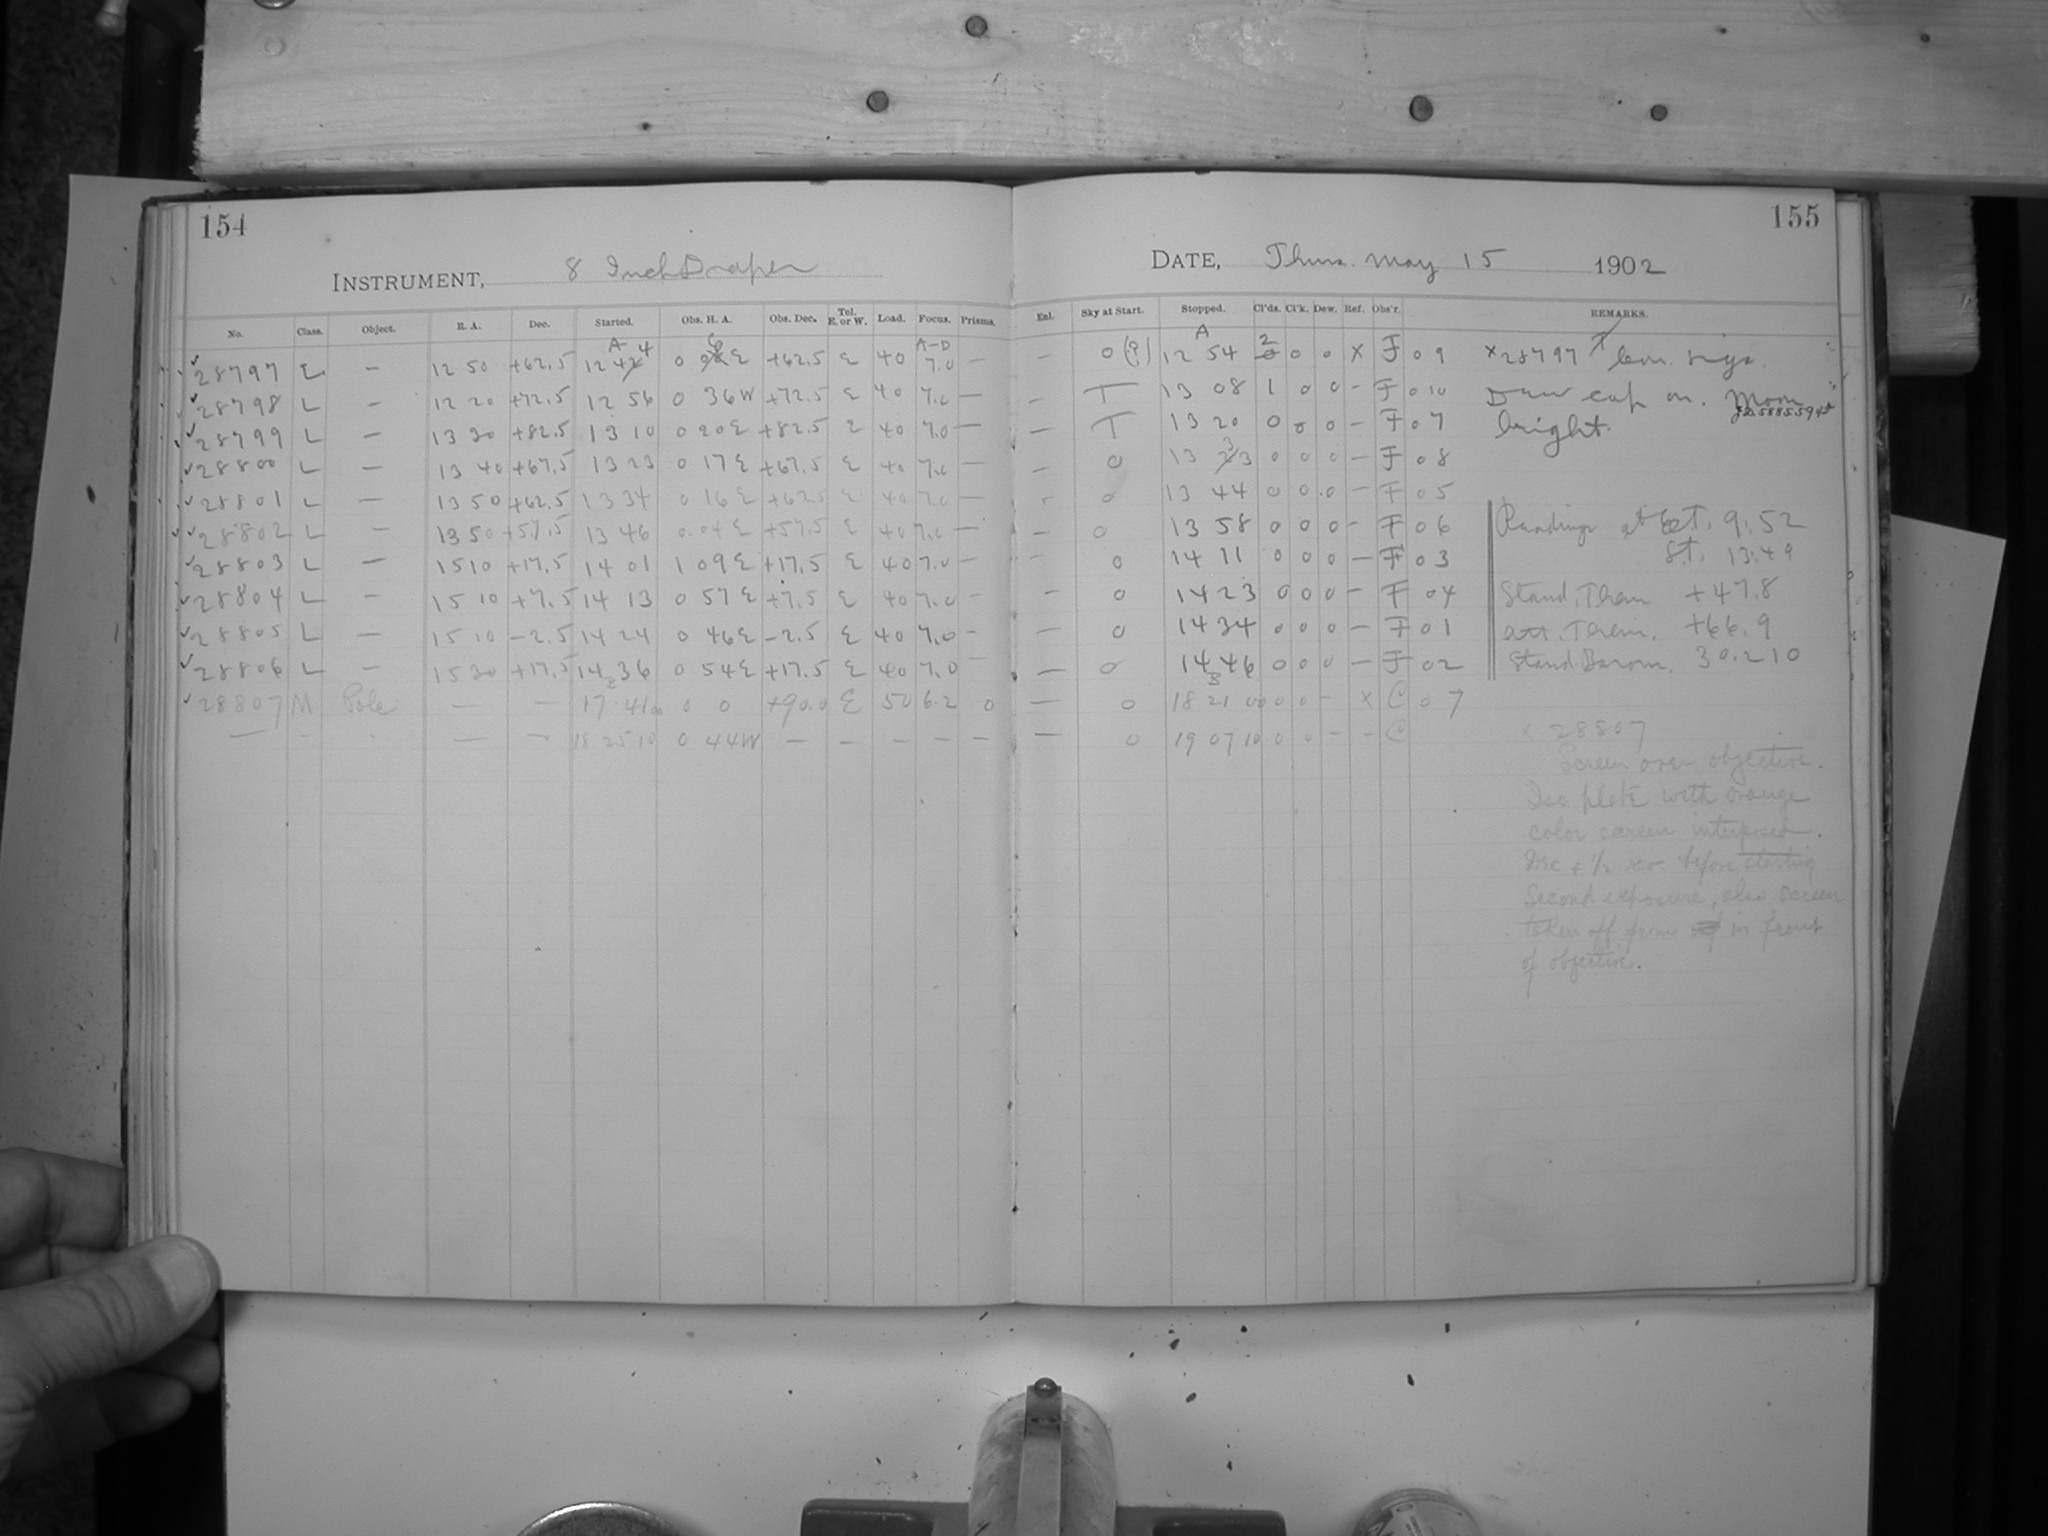 154
155
INSTRUMENT, 8 Inch Draper
DATE, Thurs. May 15 1902
No. Class. Object. R. A. Dec. Started. Obs. H. A. Obs. Dec. Tel. E. or W. Load. Focus. Prisms. Enl. Sky at Start. Stopped. Cl'ds. Cl'k. Dew. Ref. Obs'r. REMARKS.
A A-D A
28797 L — 12 50 +62.5 12 44 0 06 E +62.5 E 40 7.0 — — 0 (?) 12 54 2 0 0 x F 09 x28797
28798 L — 12 20 +72.5 12 56 0 36 W +72.5 E 40 7.0 — — T 13 08 1 0 0 – F 010 Dew cap on. Moon
28799 L — 13 30 +82.5 13 10 0 20 E +82.5 E 40 7.0 — — T 13 20 0 0 0 – F 07 bright.
28800 L — 13 40 +67.5 13 23 0 17 E +67.5 E 40 7.0 — — 0 13 33 0 0 0 – F 08
28801 L — 13 50 +62.5 13 34 0 16 E +62.5 E 40 7.0 — - 0 13 44 0 0 0 – F 05
28802 L — 13 50 +57.5 13 46 0.04 E +57.5 E 40 7.0 — 0 13 58 0 0 0 – F 06 Readings at E.T. 9:52
28803 L — 15 10 +17.5 14 01 1 09 E +17.5 E 40 7.0 — – 0 14 11 0 0 0 – F 03 S.T. 13:49
28804 L — 15 10 +7.5 14 13 0 57 E +7.5 E 40 7.0 – — 0 14 23 0 0 0 – F 04 Stand. Them +47.8
28805 L — 15 10 –2.5 14 24 0 46 E –2.5 E 40 7.0 – — 0 14 34 0 0 0 – F 01 att. Them. +66.9
28806 L — 15 30 +17.5 14 36 0 54 E +17.5 E 40 7.0 — — 0 14 46 0 0 0 – F 02 Stand. Barom. 30.210
28807 M Pole — — 17 41 0 0 +90.0 E 50 6.2 0 — 0 18 21 00 0 0 – x C 07
— — — 18 25 10 0 44 W — — — — — — 0 19 07 10 0 0 – – C x 28807
Screen over objective.
Iso plate with orange
color careen interposed.
Dec + 1/2 rev. before starting
Second exposure, also screen
taken off from in front
of objective.